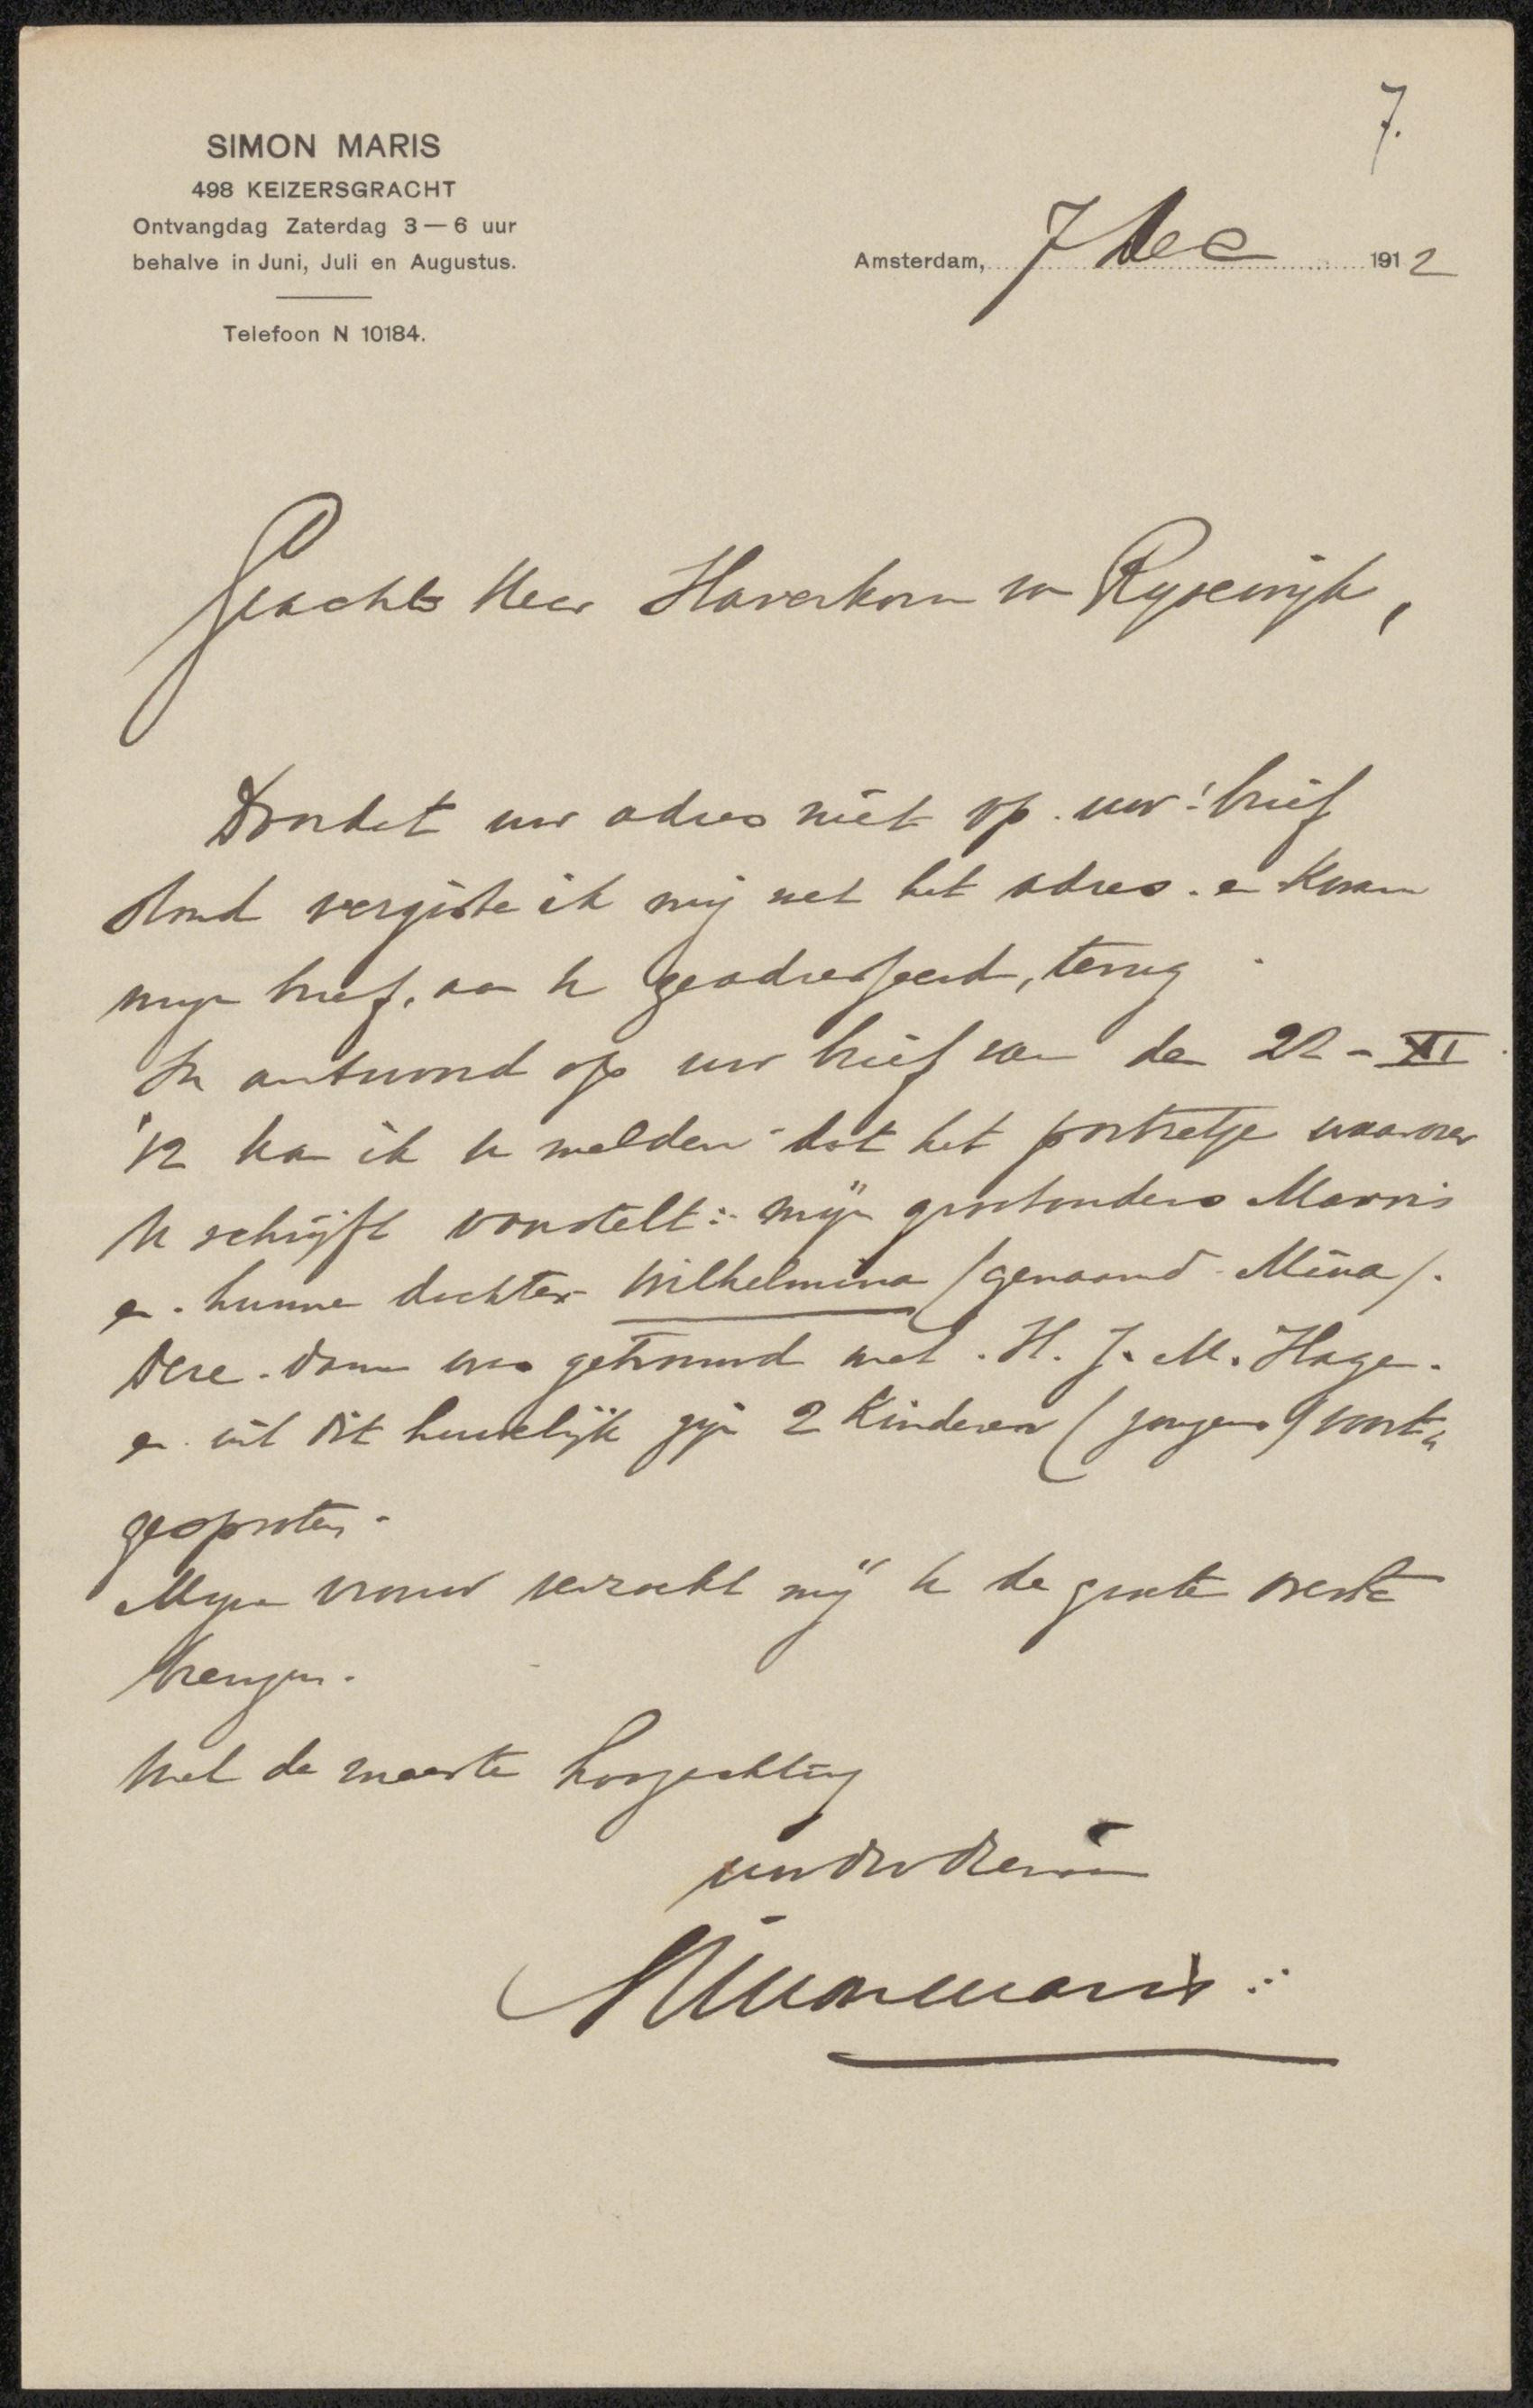 7.
SIMON MARIS
498 KEIZERSGRACHT
Ontvangdag Zaterdag 3 — 6 uur
behalve in Juni, Juli en Augustus.
Telefoon N 10184.
Amsterdam, 7 Dec 1912
Geachte Heer Haverkorn van Rysewijk,
Doordat uw adres niet op uw brief
stond vergiste ik mij met het adres en kwam
mijn brief, aan u geadresseerd, terug
In antwoord op uw brief van den 22 - XI
'12 kan ik u melden dat het portretje waarover
u schrijft voorstelt: mijn grootouders Marris
en hunne dochter Wilhelmina (genaamd Mina).
Deze dame was getrouwd met H. J. M. Hage.
en uit dit huwelijk zijn 2 kinderen (jongens) voort„
gesproten.
Mijn vrouw verzocht mij u de groeten over te
brengen.
Met de meeste hoogachting
uw dw dienaar
Simon Maris